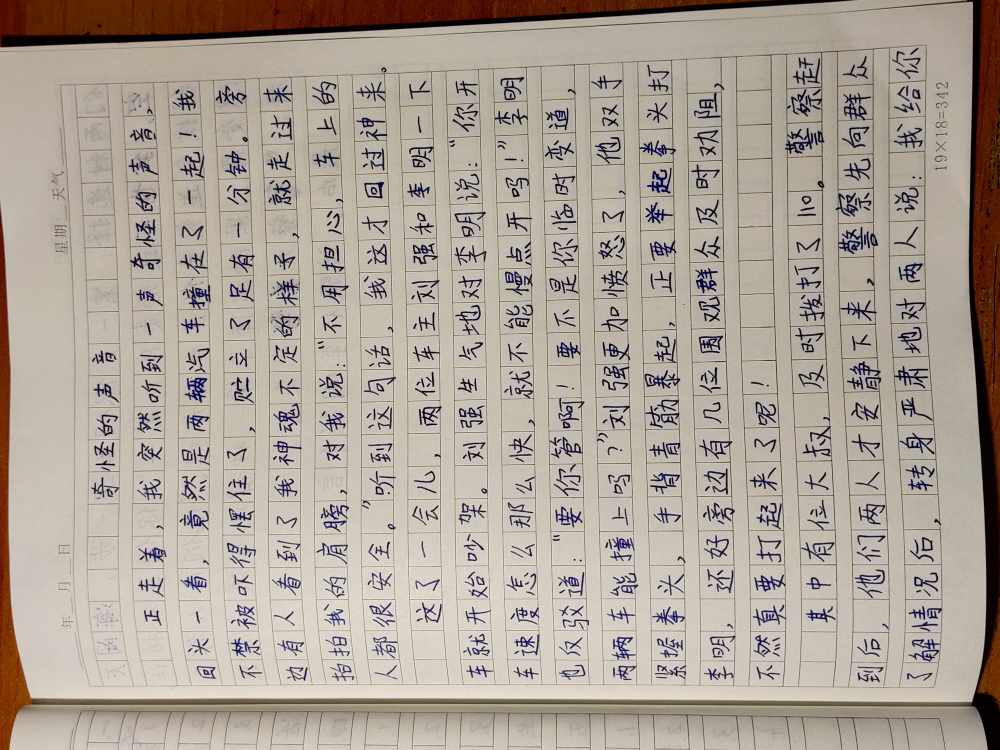 年 月 日 星期 天气
奇怪的声音
正走着,我突然听到一声奇怪的声音,
回头一看,竟然是两辆汽车撞在了一起!我
不禁被吓得愣住了,贮立了足有一分钟。旁
边有人看到了我神魂不定的样子,就走过来
拍拍我的肩膀,对我说:“不用担心,车上的
人都很安全。”听到这句话,我这才回过神来。
过了一会儿,两位车主刘强和李明一下
车就开始吵架。刘强生气地对李明说:“你开
车速度怎么那么快,就不能慢点开吗!”李明
也反驳道:“要你管啊!要不是你临时变道,
两辆车能撞上吗?”刘强更加愤怒了,他双手
紧握拳头,手背青筋暴起,正要举起拳头打
李明,还好旁边有几位围观群众及时劝阻,
不然真要打起来了呢!
其中有位大叔,及时拨打了110。警察赶
到后,他们两人才安静下来,警察先向群众
了解情况后,转身严肃地对两人说:我给你
19×18=342